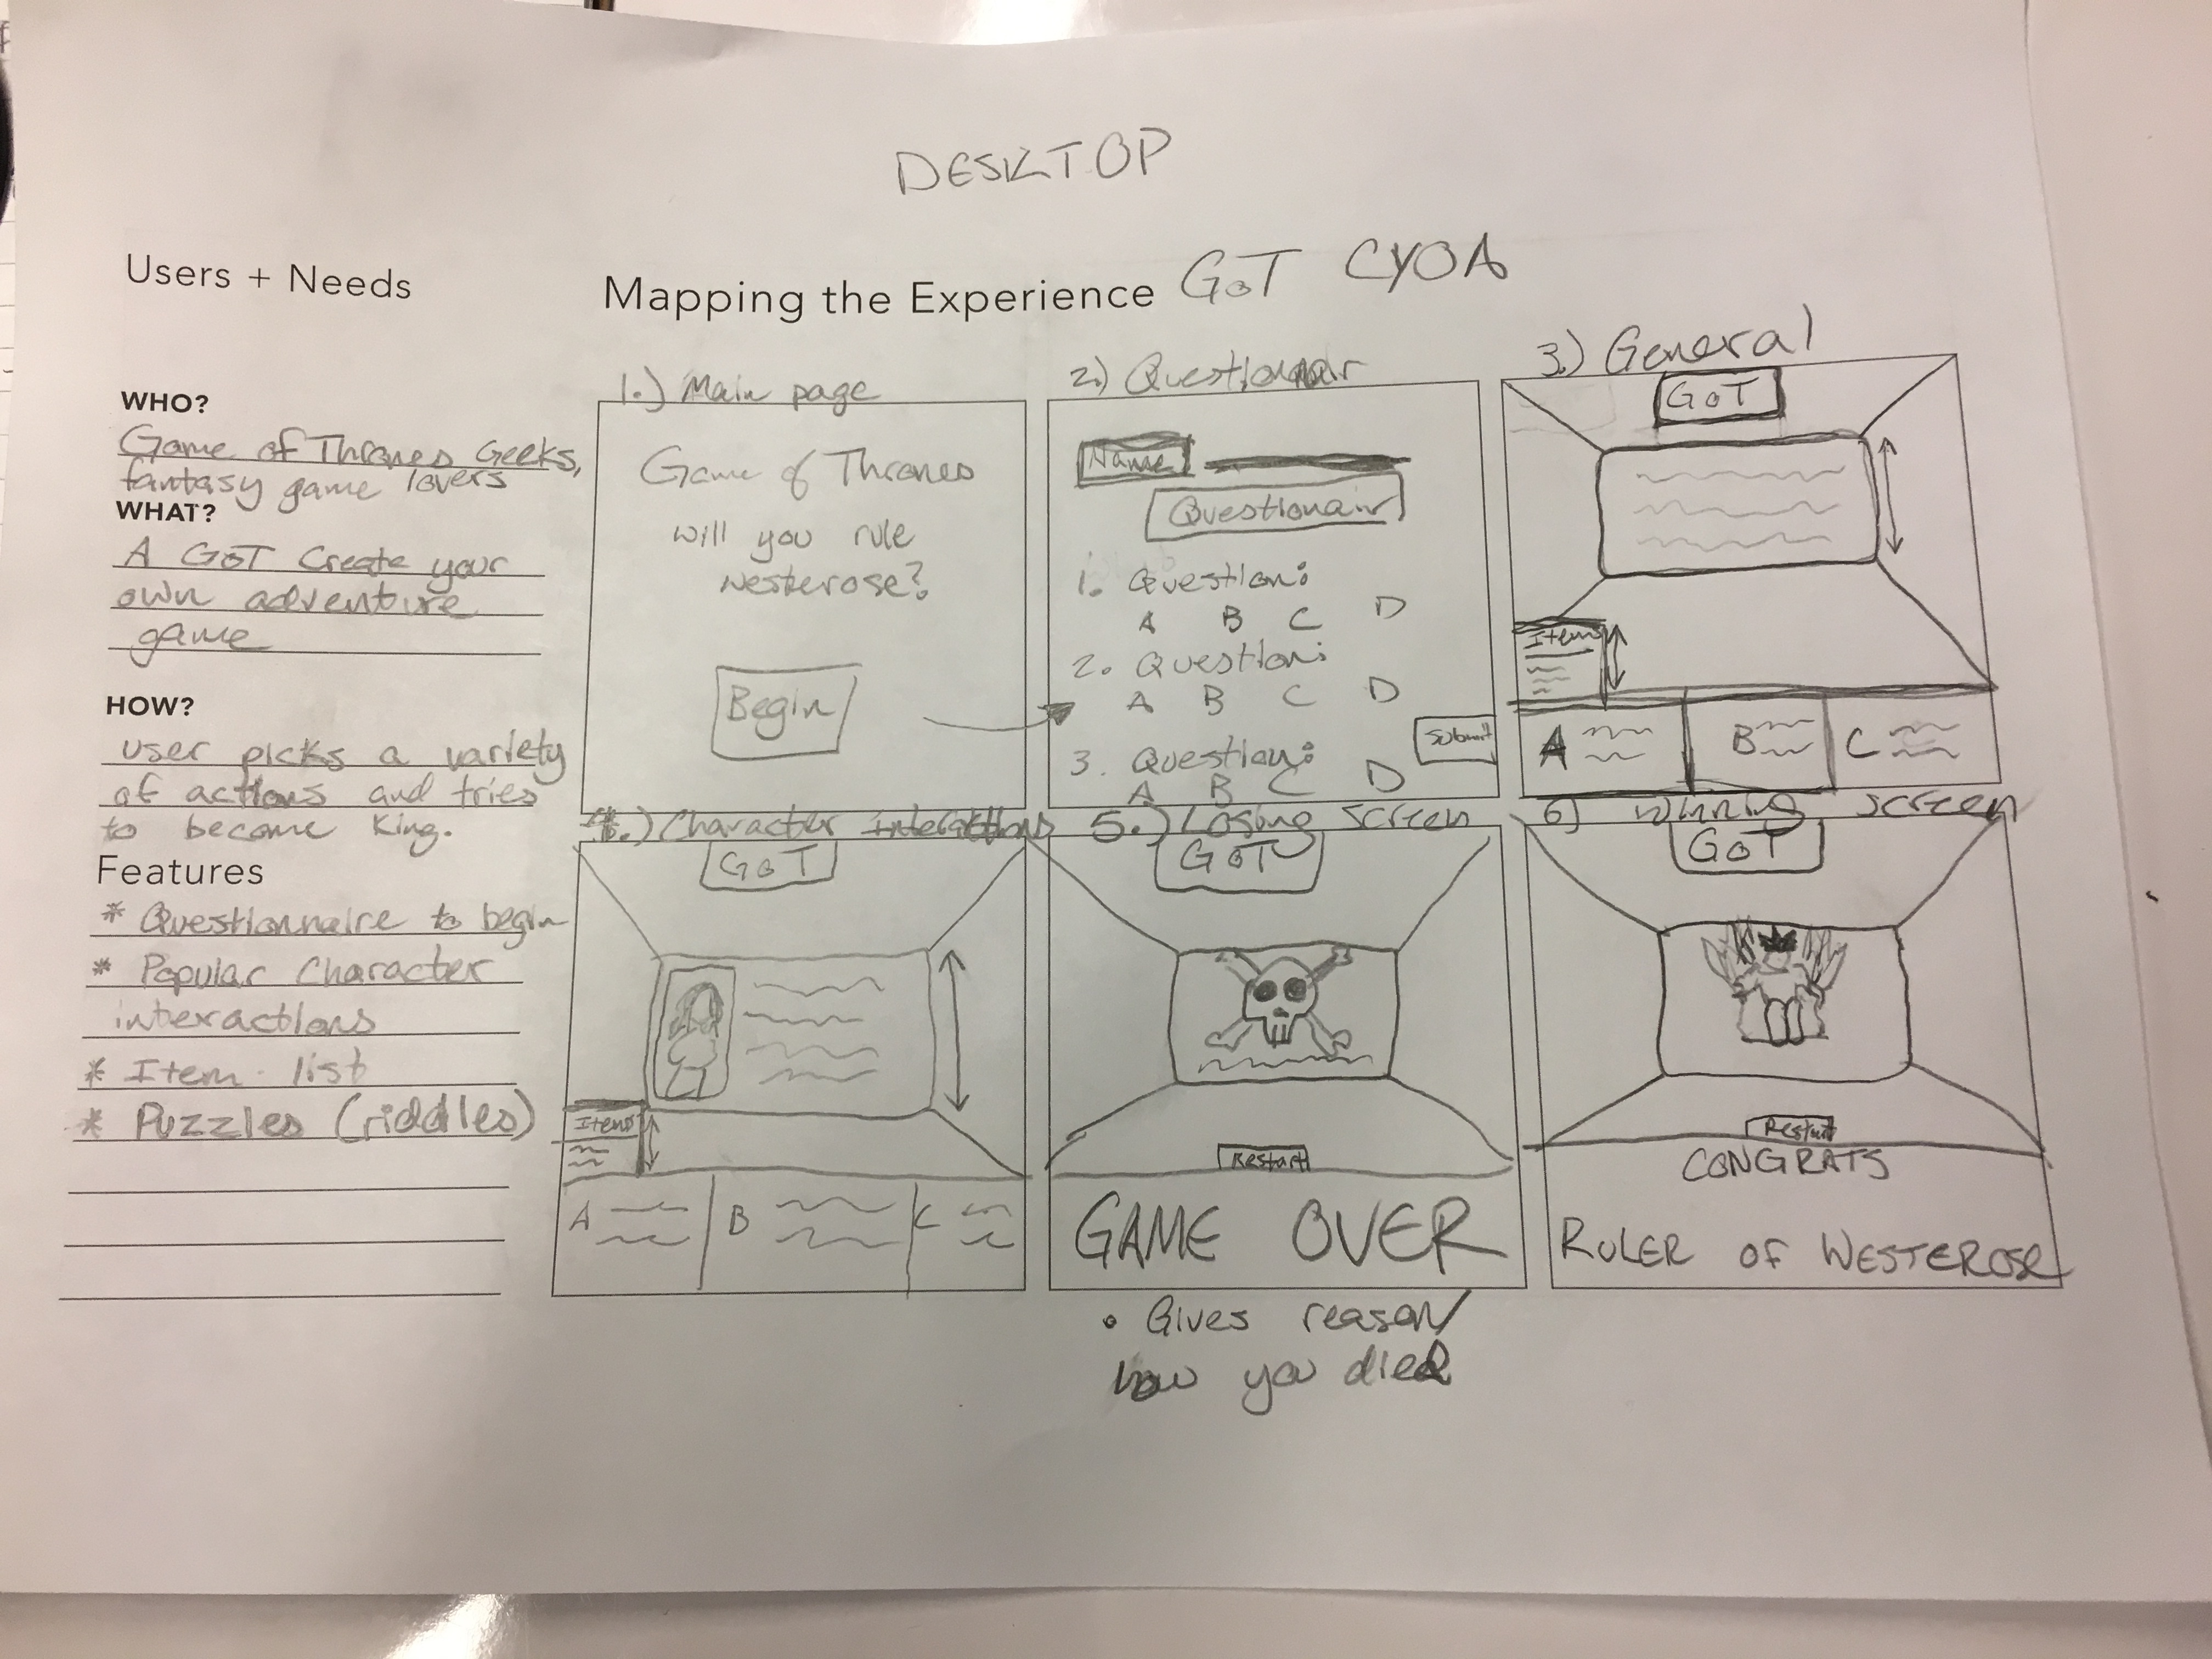 DESKTOP
Users + Needs
Mapping the Experience GoT CYOA
WHO?
Game of Thrones Geeks,
fantasy game lovers
WHAT?
A GoT Create your
own adventure
game
HOW?
user picks a variety
of actions and tries
to become King.
Features
* Questionnaire to begin
* Popular Character
interactions
* Item list
* Puzzles (riddles)
1.) Main page
Game of Thrones
will you rule
westerose?
Begin
2.) Questionnair
Name
Questionair
1. Question:
A B C D
2. Question:
A B C D
3. Question:
A B C D
Submit
3.) General
GoT
Items
A B C
4.) Character interactions
GoT
Items
A B C
5.) Losing Screen
GoT
Restart
GAME OVER
• Gives reason/
how you died
6) winning screen
GoT
Restart
CONGRATS
RULER OF WESTEROSE